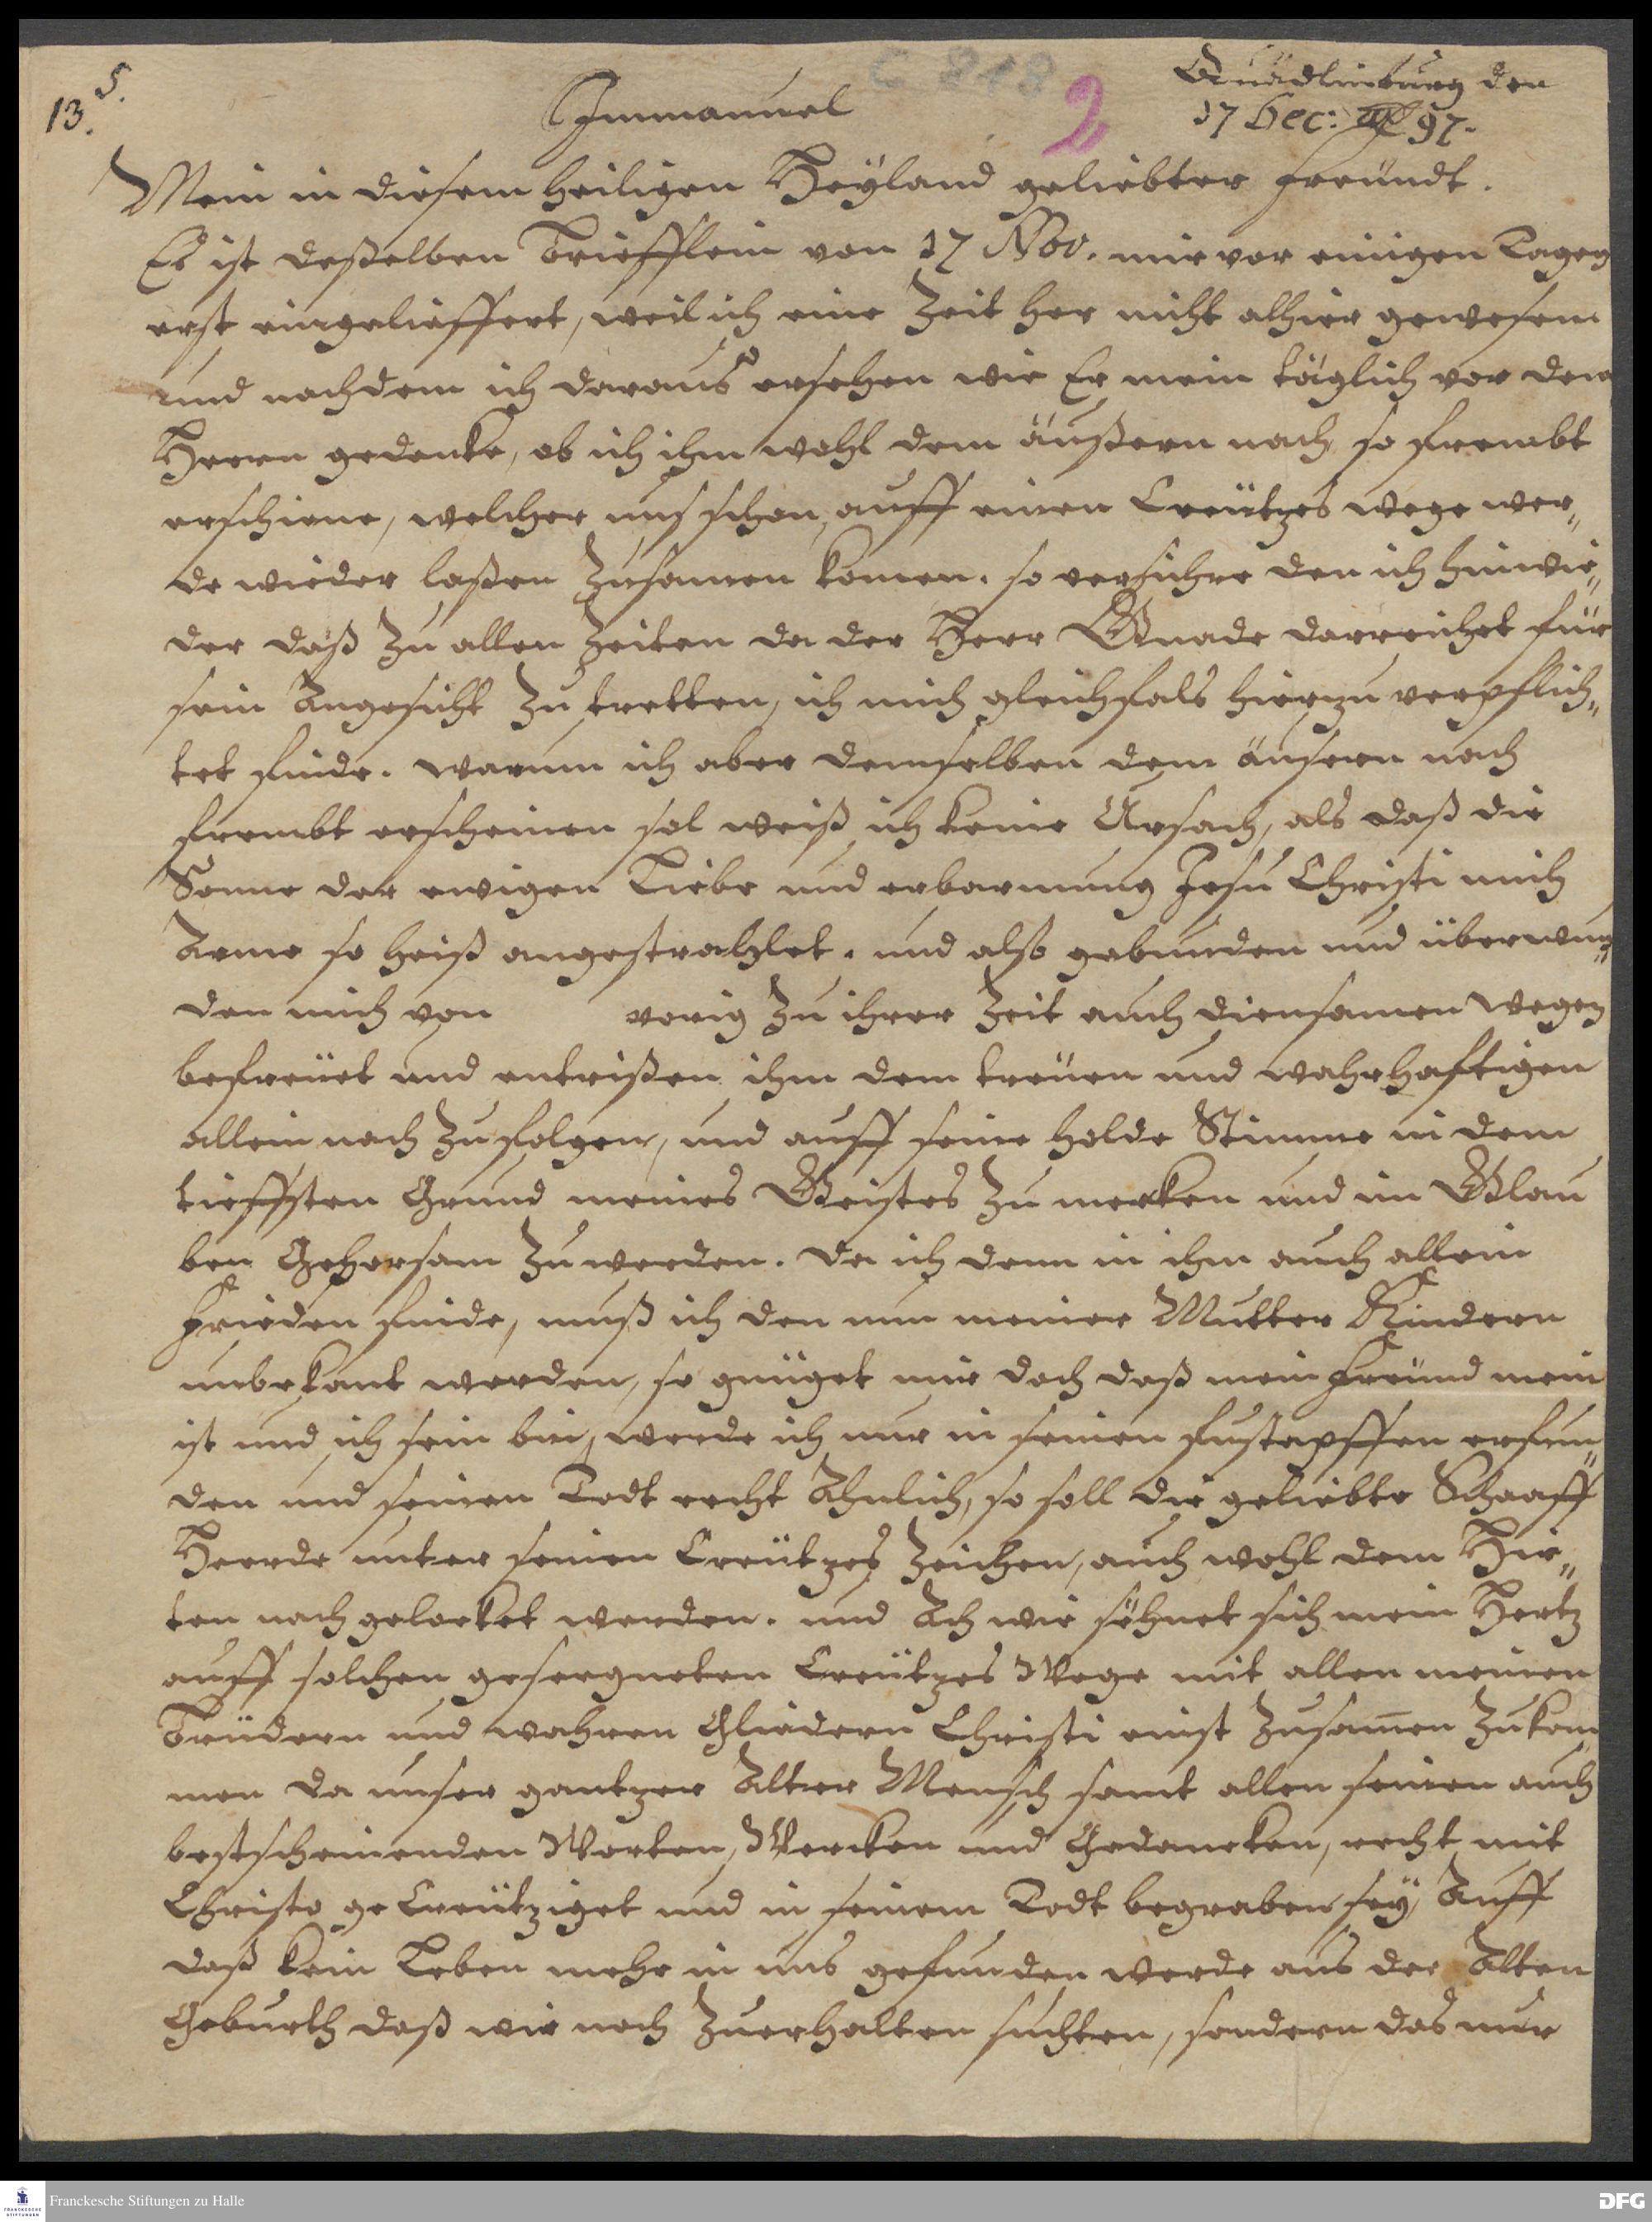 13.
5.
C 818
2
Quädlinburg den
17 Dec: 97.
Immanuel
Mein in diesem heiligen Heÿland geliebter freündt.
Es ist deßelben Briefflein von 17 Nov. mir vor einigen Tagen
erst eingelieffert, weil ich eine Zeit her nicht alhier gewesen
und nachdem ich daraus ersehen wie Er mein täglich vor dem
Herrn gedencke, ob ich ihm wohl dem äußern nach so frembt
erschiene, welcher uns schon auff einen Creützes wege wer„
de wieder laßen Zusamen komen. so versichre den ich hinwie„
der daß Zu allen Zeiten da der Herr Gnade darreichet für
sein Angesicht Zu tretten, ich mich gleichfals hierzu verpflich„
tet finde. warum ich aber demselben dem äusern nach
frembt erscheinen sol weiß ich keine Ursach, als daß die
Sonne der ewigen Liebe und erbarmung Jesu Christi mich
Arme so heiß angestrahlet. und also gebunden und überwun„
den mich von vorig Zu ihrer Zeit auch diensamen wegen
befreüet und entrißen ihm dem treüen und wahrhafftigen
allein nach Zu folgen, und auff seine holde Stimme in dem
tieffsten Grund meines Geistes Zu mercken und im Glau
ben Gehorsam Zu werden. da ich denn in ihm auch allein
frieden finde, muß ich den nun meiner Mutter Kindern
unbekant werden, so gnüget mir doch daß mein freünd mein
ist und ich sein bin, werde ich nur in seinen fustapffen erfun„
den und seinen Todt recht Ähnlich, so soll die geliebte Schaaff
Heerde unter seinen Creützes Zeichen, auch wohl dem Hir„
ten nach gelocket werden. und Ach wie sehnet sich mein Hertz
auff solchen gesegneten Creützes Wege mit allen meinen
Brüdern und wahren Gliedern Christi einst Zusamen Zu kom
men da unser gantzer Alter Mensch samt allen seinen auch
bestscheinenden Worten, Wercken und Gedancken, recht mit
Christo ge Creützigt und in seinem Todt begraben seÿ, Auff
daß kein Leben mehr in uns gefunden werde aus der Alten
Geburth daß wir noch Zuerhalten suchten, sondern das nur
Franckesche Stiftungen zu Halle
FRANCKESCHE STIFTUNGEN
DFG